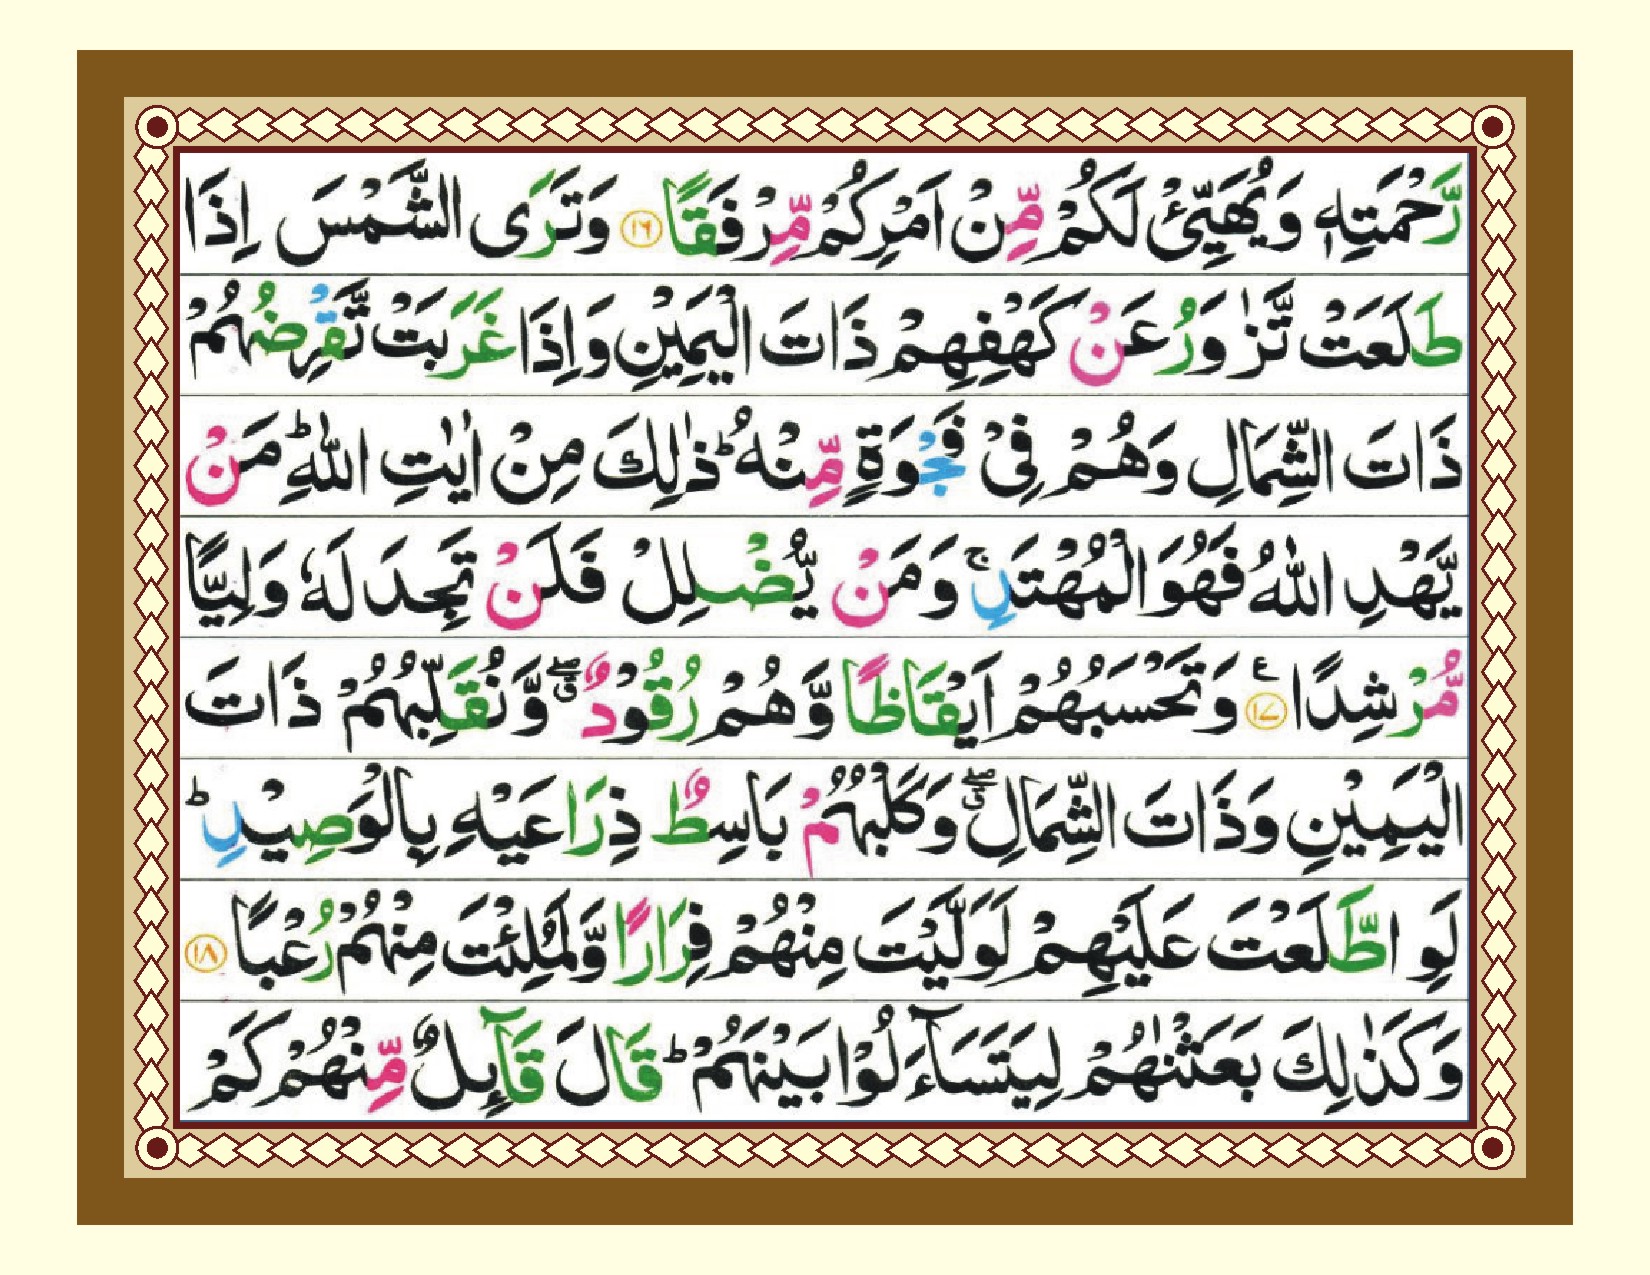 رَّحْمَتِهٖ وَيُهَيِّئْ لَكُمْ مِّنْ اَمْرِكُمْ مِّرْفَقًا ﴿۱۶﴾ وَتَرَى الشَّمْسَ اِذَا
طَلَعَتْ تَّزٰوَرُ عَنْ كَهْفِهِمْ ذَاتَ الْيَمِيْنِ وَاِذَا غَرَبَتْ تَّقْرِضُهُمْ
ذَاتَ الشِّمَالِ وَهُمْ فِيْ فَجْوَةٍ مِّنْهُ ؕ ذٰلِكَ مِنْ اٰيٰتِ اللّٰهِ ؕ مَنْ
يَّهْدِ اللّٰهُ فَهُوَ الْمُهْتَدِ ۚ وَمَنْ يُّضْلِلْ فَلَنْ تَجِدَ لَهٗ وَلِيًّا
مُّرْشِدًا ﴿۱۷﴾ ع وَتَحْسَبُهُمْ اَيْقَاظًا وَّهُمْ رُقُوْدٌ ۖق وَّنُقَلِّبُهُمْ ذَاتَ
الْيَمِيْنِ وَذَاتَ الشِّمَالِ ۖق وَكَلْبُهُمْ بَاسِطٌ ذِرَاعَيْهِ بِالْوَصِيْدِ ؕ
لَوِ اطَّلَعْتَ عَلَيْهِمْ لَوَلَّيْتَ مِنْهُمْ فِرَارًا وَّلَمُلِئْتَ مِنْهُمْ رُعْبًا ﴿۱۸﴾
وَكَذٰلِكَ بَعَثْنٰهُمْ لِيَتَسَآءَلُوْا بَيْنَهُمْ ؕ قَالَ قَآىِٕلٌ مِّنْهُمْ كَمْ